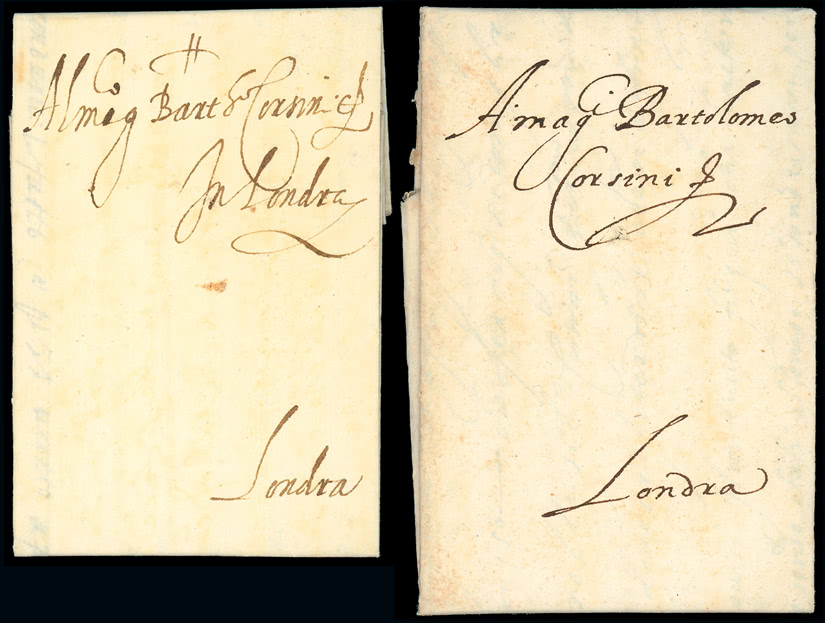 Al mag Barth Corsini
In Londra
Londra
A mag Bartolomeo
Corsini
Londra